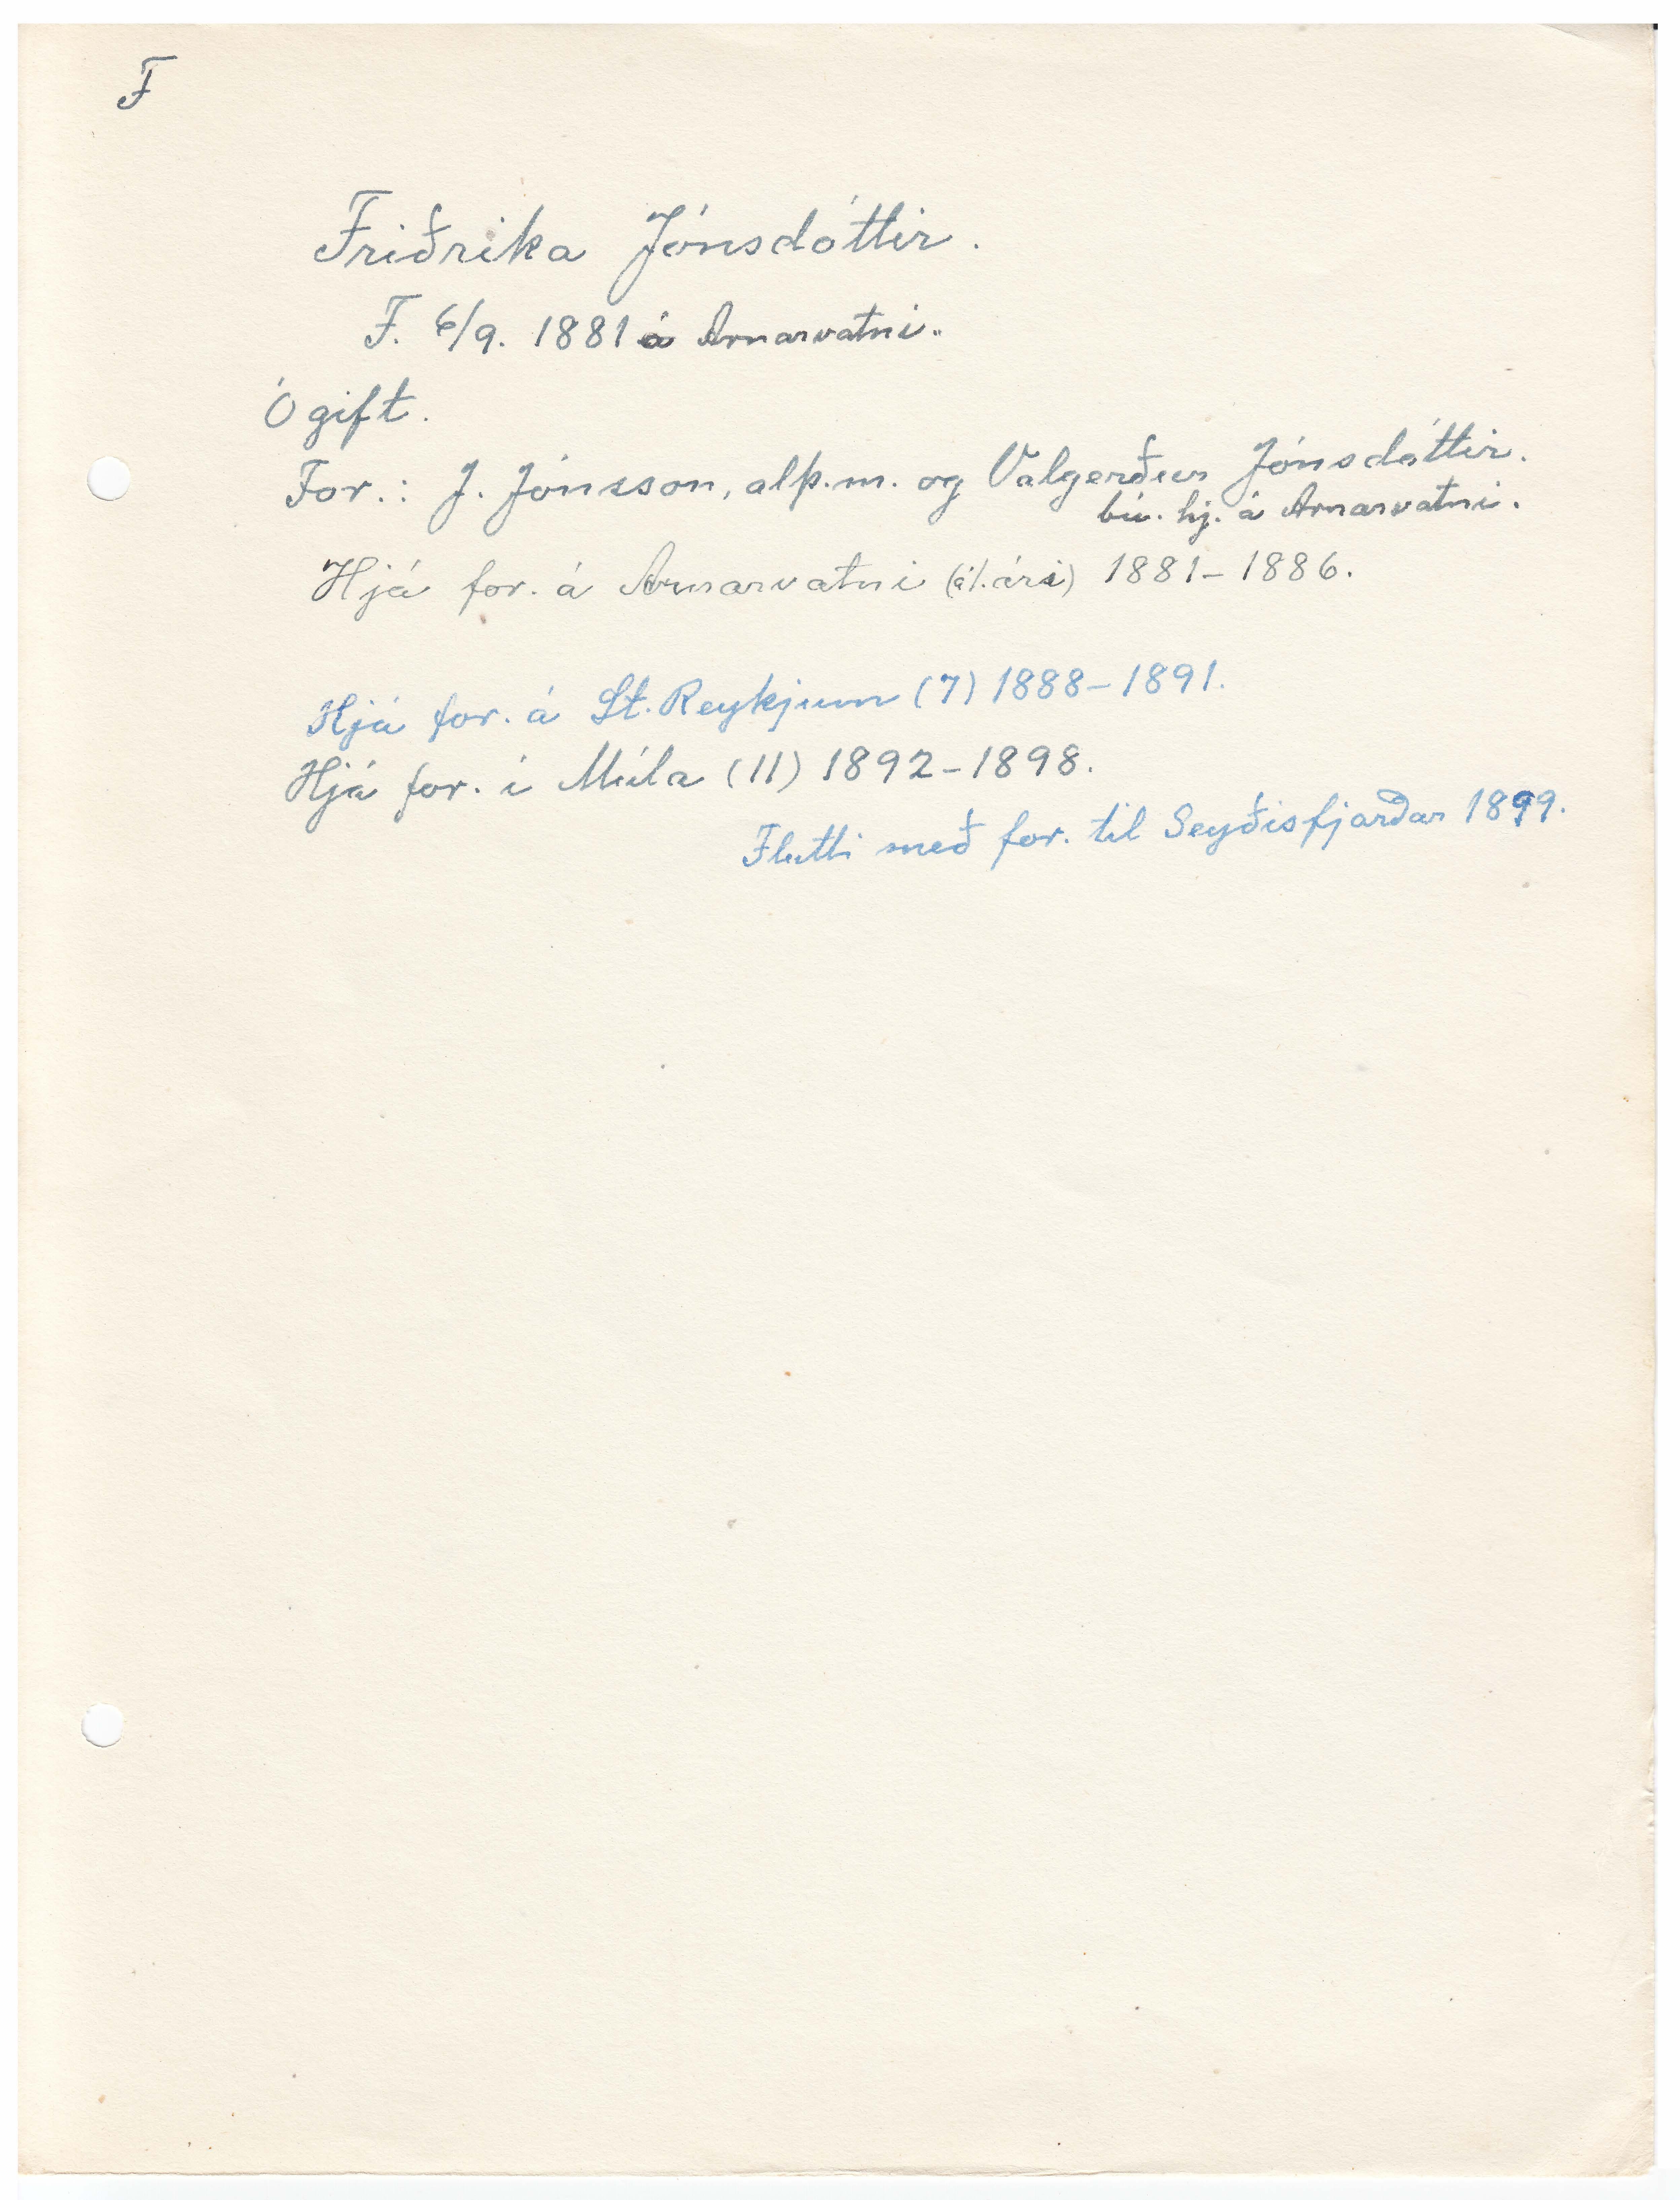 F
Friðrika Jónsdóttir.
F. 6/9. 1881 á Arnarvatni.
Ógift.
For.: J. Jónsson, alþ.m. og Valgerður Jónsdóttir.
bú. hj. á Arnarvatni.
Hjá for. á Arnarvatni (á 1. ári) 1881-1886.
Hjá for. á St. Reykjum (7) 1888-1891.
Hjá for. í Múla (11) 1892-1898.
Flutti með for. til Seyðisfjarðar 1899.